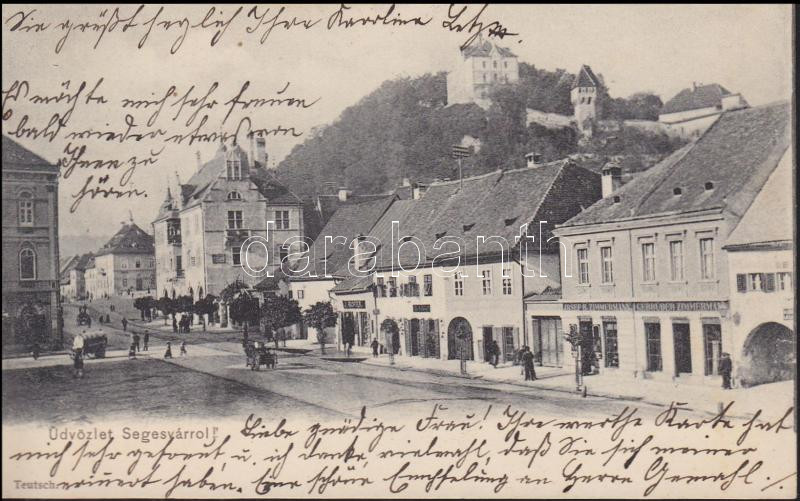 Sie grüßt herzlich Ihre Karoline
Es möchte mich sehr freuen
bald wieder etwas von
Ihnen zu
hören.
darabanth
GEBRÜDER ZIMMERMANN
Üdvözlet Segesvárról!
Liebe gnädige Frau! Ihre werthe Karte hat
mich sehr gefreut, u. ich danke vielmahl, daß Sie sich meiner
erinnert haben. Eine schöne Empfehlung an Herrn Gemahl.
Teutsch